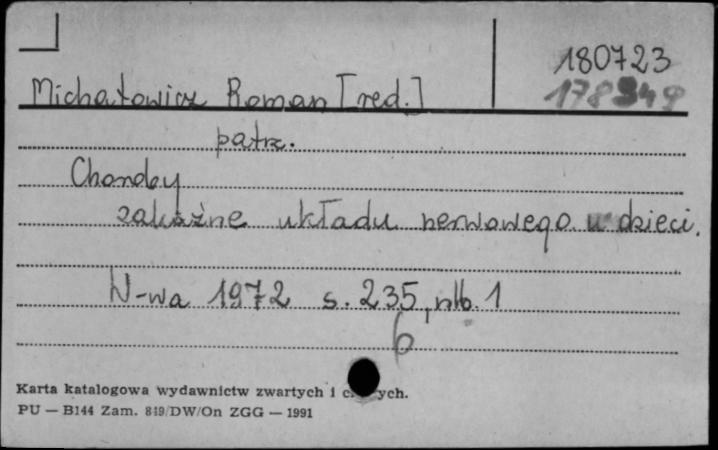 180723
Michałowicz Roman [red.]
178949
patrz.
Choroby
zakaźne układu nerwowego u dzieci.
W-wa 1972 s. 235, nlb. 1
6
Karta katalogowa wydawnictw zwartych i ych.
PU — B144 Zam. 819/DW/On ZGG — 1991